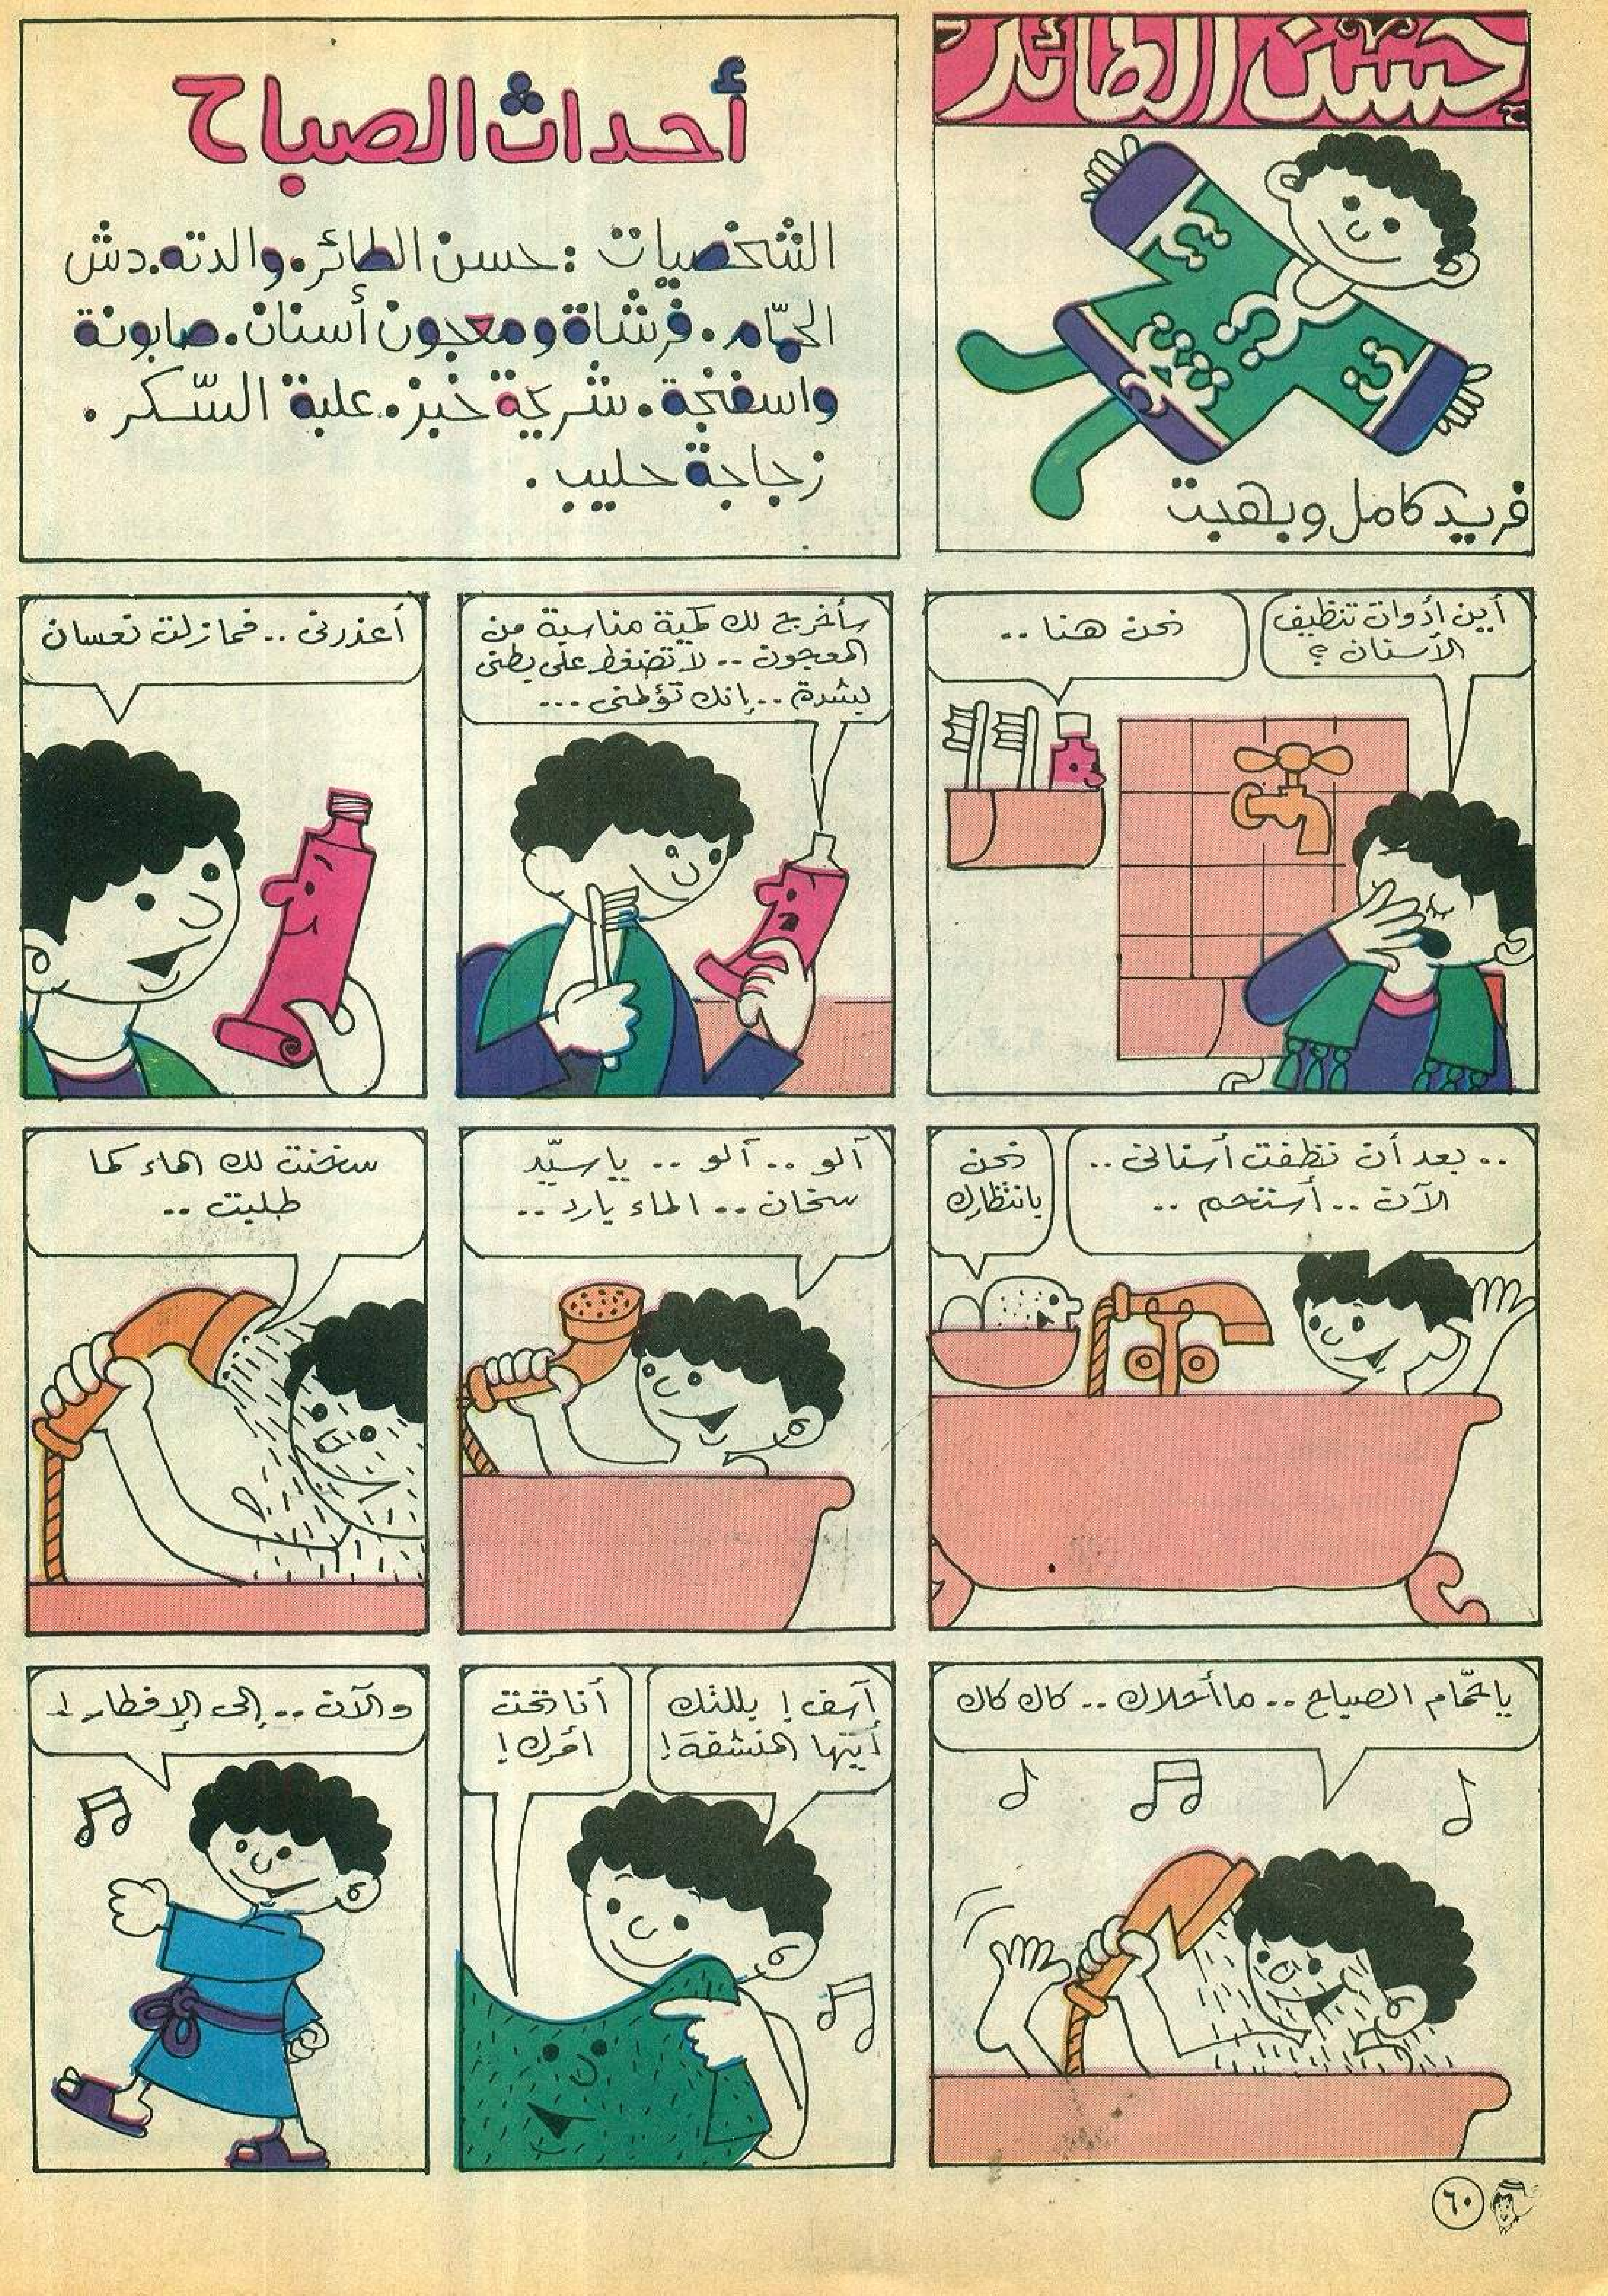 حسن الطائر
فريد كامل وبهجت
أحداث الصباح
الشخصيات : حسن الطائر. والدته. دش
الحمّام. فرشاة ومعجون أسنان. صابونة
واسفنجة. شريحة خبز. علبة السّكر.
زجاجة حليب.
أين أدوات تنظيف
الأسنان ؟
نحن هنا ..
سأخرج لك كمية مناسبة من
المعجون .. لا تضغط على بطنى
بشدة .. إنك تؤلمنى ...
أعذرنى .. فمازلت نعسان
.. بعد أن نظفت أسنانى ..
الآن .. أستحم ..
نحن
بانتظارك
آلو .. آلو .. ياسيّد
سخان .. الماء بارد ..
سخنت لك الماء كما
طلبت ..
ياحمّام الصباح .. ما أحلاك .. كاك كاك
آسف ! بللتك
أيتها المنشفة !
أنا تحت
أمرك !
والآن .. إلى الإفطار !
٦٠